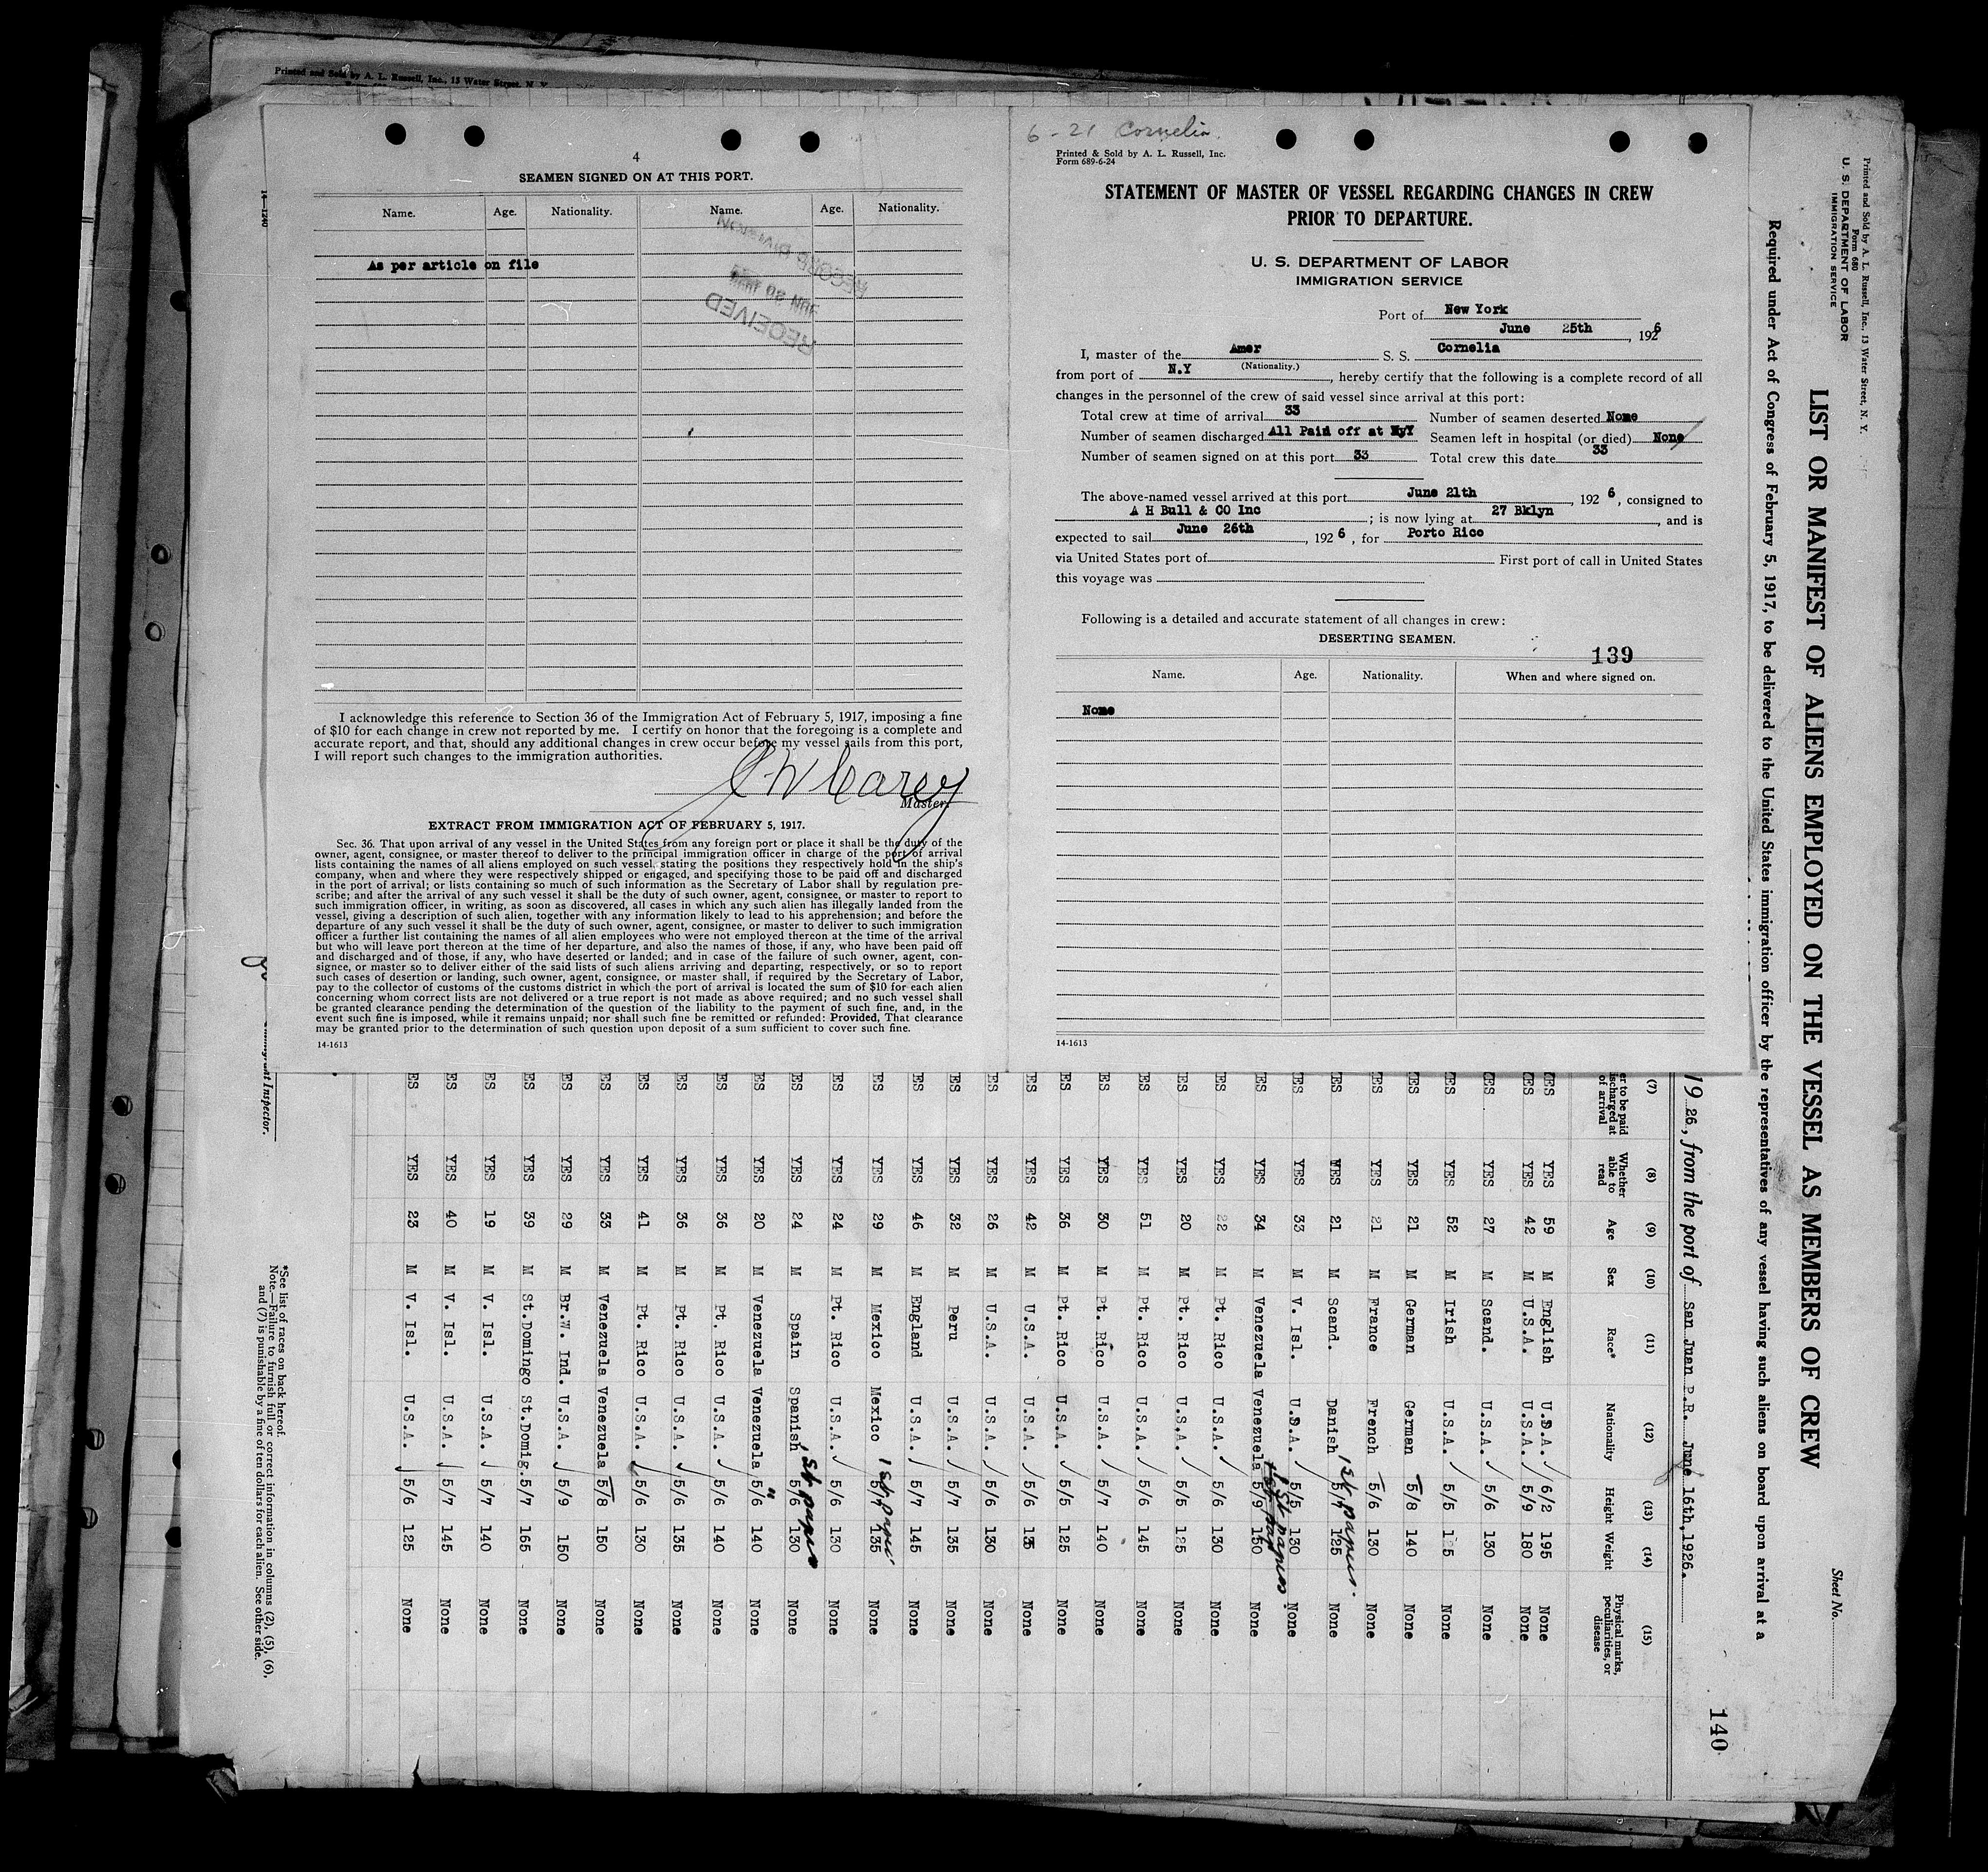 Printed and Sold by A. L. Russell, Inc., 13 Water Street, N. Y.
14-1240
4
SEAMEN SIGNED ON AT THIS PORT.
Name. Age. Nationality. Name. Age. Nationality.
As per article on file
RECEIVED
JUN 20
RECORD DIVISION
I acknowledge this reference to Section 36 of the Immigration Act of February 5, 1917, imposing a fine
of $10 for each change in crew not reported by me. I certify on honor that the foregoing is a complete and
accurate report, and that, should any additional changes in crew occur before my vessel sails from this port,
I will report such changes to the immigration authorities.
J W Carey
Master.
EXTRACT FROM IMMIGRATION ACT OF FEBRUARY 5, 1917.
Sec. 36. That upon arrival of any vessel in the United States from any foreign port or place it shall be the duty of the
owner, agent, consignee, or master thereof to deliver to the principal immigration officer in charge of the port of arrival
lists containing the names of all aliens employed on such vessel, stating the positions they respectively hold in the ship's
company, when and where they were respectively shipped or engaged, and specifying those to be paid off and discharged
in the port of arrival; or lists containing so much of such information as the Secretary of Labor shall by regulation pre-
scribe; and after the arrival of any such vessel it shall be the duty of such owner, agent, consignee, or master to report to
such immigration officer, in writing, as soon as discovered, all cases in which any such alien has illegally landed from the
vessel, giving a description of such alien, together with any information likely to lead to his apprehension; and before the
departure of any such vessel it shall be the duty of such owner, agent, consignee, or master to deliver to such immigration
officer a further list containing the names of all alien employees who were not employed thereon at the time of the arrival
but who will leave port thereon at the time of her departure, and also the names of those, if any, who have been paid off
and discharged and of those, if any, who have deserted or landed; and in case of the failure of such owner, agent, con-
signee, or master so to deliver either of the said lists of such aliens arriving and departing, respectively, or so to report
such cases of desertion or landing, such owner, agent, consignee, or master shall, if required by the Secretary of Labor,
pay to the collector of customs of the customs district in which the port of arrival is located the sum of $10 for each alien
concerning whom correct lists are not delivered or a true report is not made as above required; and no such vessel shall
be granted clearance pending the determination of the question of the liability to the payment of such fine, and, in the
event such fine is imposed, while it remains unpaid; nor shall such fine be remitted or refunded: Provided, That clearance
may be granted prior to the determination of such question upon deposit of a sum sufficient to cover such fine.
14-1613
6 - 21 Cornelia
Printed & Sold by A. L. Russell, Inc.
Form 689-6-24
STATEMENT OF MASTER OF VESSEL REGARDING CHANGES IN CREW
PRIOR TO DEPARTURE.
U. S. DEPARTMENT OF LABOR
IMMIGRATION SERVICE
Port of New York
June 25th, 1926
I, master of the Amer S. S. Cornelia
(Nationality.)
from port of N.Y, hereby certify that the following is a complete record of all
changes in the personnel of the crew of said vessel since arrival at this port:
Total crew at time of arrival 33 Number of seamen deserted None
Number of seamen discharged All Paid off at NyY Seamen left in hospital (or died) None
Number of seamen signed on at this port 33 Total crew this date 33
The above-named vessel arrived at this port June 21th, 192 6, consigned to
A H Bull & CO Inc; is now lying at 27 Bklyn, and is
expected to sail June 26th, 192 6, for Porto Rico
via United States port of First port of call in United States
this voyage was
Following is a detailed and accurate statement of all changes in crew:
DESERTING SEAMEN.
139
Name. Age. Nationality. When and where signed on.
None
14-1613
Printed and Sold by A. L. Russell, Inc., 13 Water Street, N. Y.
Form 680
U. S. DEPARTMENT OF LABOR
IMMIGRATION SERVICE
Sheet No.
LIST OR MANIFEST OF ALIENS EMPLOYED ON THE VESSEL AS MEMBERS OF CREW
Required under Act of Congress of February 5, 1917, to be delivered to the United States immigration officer by the representatives of any vessel having such aliens on board upon arrival at a
140
19 26, from the port of San Juan P.R. June 16th,1926.
(7) (8) (9) (10) (11) (12) (13) (14) (15)
er to be paid discharged at of arrival Whether able to read Age Sex Race* Nationality Height Weight Physical marks, peculiarities, or disease
ES YES 59 M English U.S.A. 6/2 195 None
ES YES 42 M U.S.A. U.S.A. 5/9 180 None
ES YES 27 M Scand. U.S.A. 5/6 130 None
ES YES 52 M Irish U.S.A. 5/5 None
ES YES 21 M German German 5/8 140 None
ES YES 21 M France French 5/6 130 None
ES YES 21 M Scand. Danish 5/7 125 None
1st papers.
ES YES 33 M V. Isl. U.S.A. 5/5 130 None
1st papers.
ES YES 34 M Venezuela Venezuela 5/9 150 None
ES YES 22 M Pt. Rico U.S.A. 5/6 130 None
ES YES 20 M Pt. Rico U.S.A. 5/5 125 None
ES YES 51 M Pt. Rico U.S.A. 5/6 145 None
ES YES 30 M Pt. Rico U.S.A. 5/7 140 None
ES YES 36 M Pt. Rico U.S.A. 5/5 125 None
ES YES 42 M U.S.A. U.S.A. 5/6 135 None
ES YES 26 M U.S.A. U.S.A. 5/6 130 None
ES YES 32 M Peru U.S.A. 5/7 135 None
ES YES 46 M England U.S.A. 5/7 145 None
ES YES 29 M Mexico Mexico 5/7 135 None
1st papers
ES YES 24 M Pt. Rico U.S.A. 5/6 130 None
ES YES 24 M Spain Spanish 5/6 130 None
1st papers
ES YES 20 M Venezuela Venezuela 5/6 140 None
ES YES 36 M Pt. Rico U.S.A. 5/6 140 None
ES YES 36 M Pt. Rico U.S.A. 5/6 135 None
ES YES 41 M Pt. Rico U.S.A. 5/6 130 None
ES YES 33 M Venezuela Venezuela 5/8 150 None
ES YES 29 M Br.W. Ind. U.S.A. 5/9 150 None
ES YES 39 M St.Domingo St.Domig. 5/7 165 None
ES YES 19 M V. Isl. U.S.A. 5/7 140 None
ES YES 40 M V. Isl. U.S.A. 5/7 145 None
ES YES 23 M V. Isl. U.S.A. 5/6 125 None
Immigrant Inspector.
*See list of races on back hereof.
Note.—Failure to furnish full or correct information in columns (2), (5), (6),
and (7) is punishable by a fine of ten dollars for each alien. See other side.